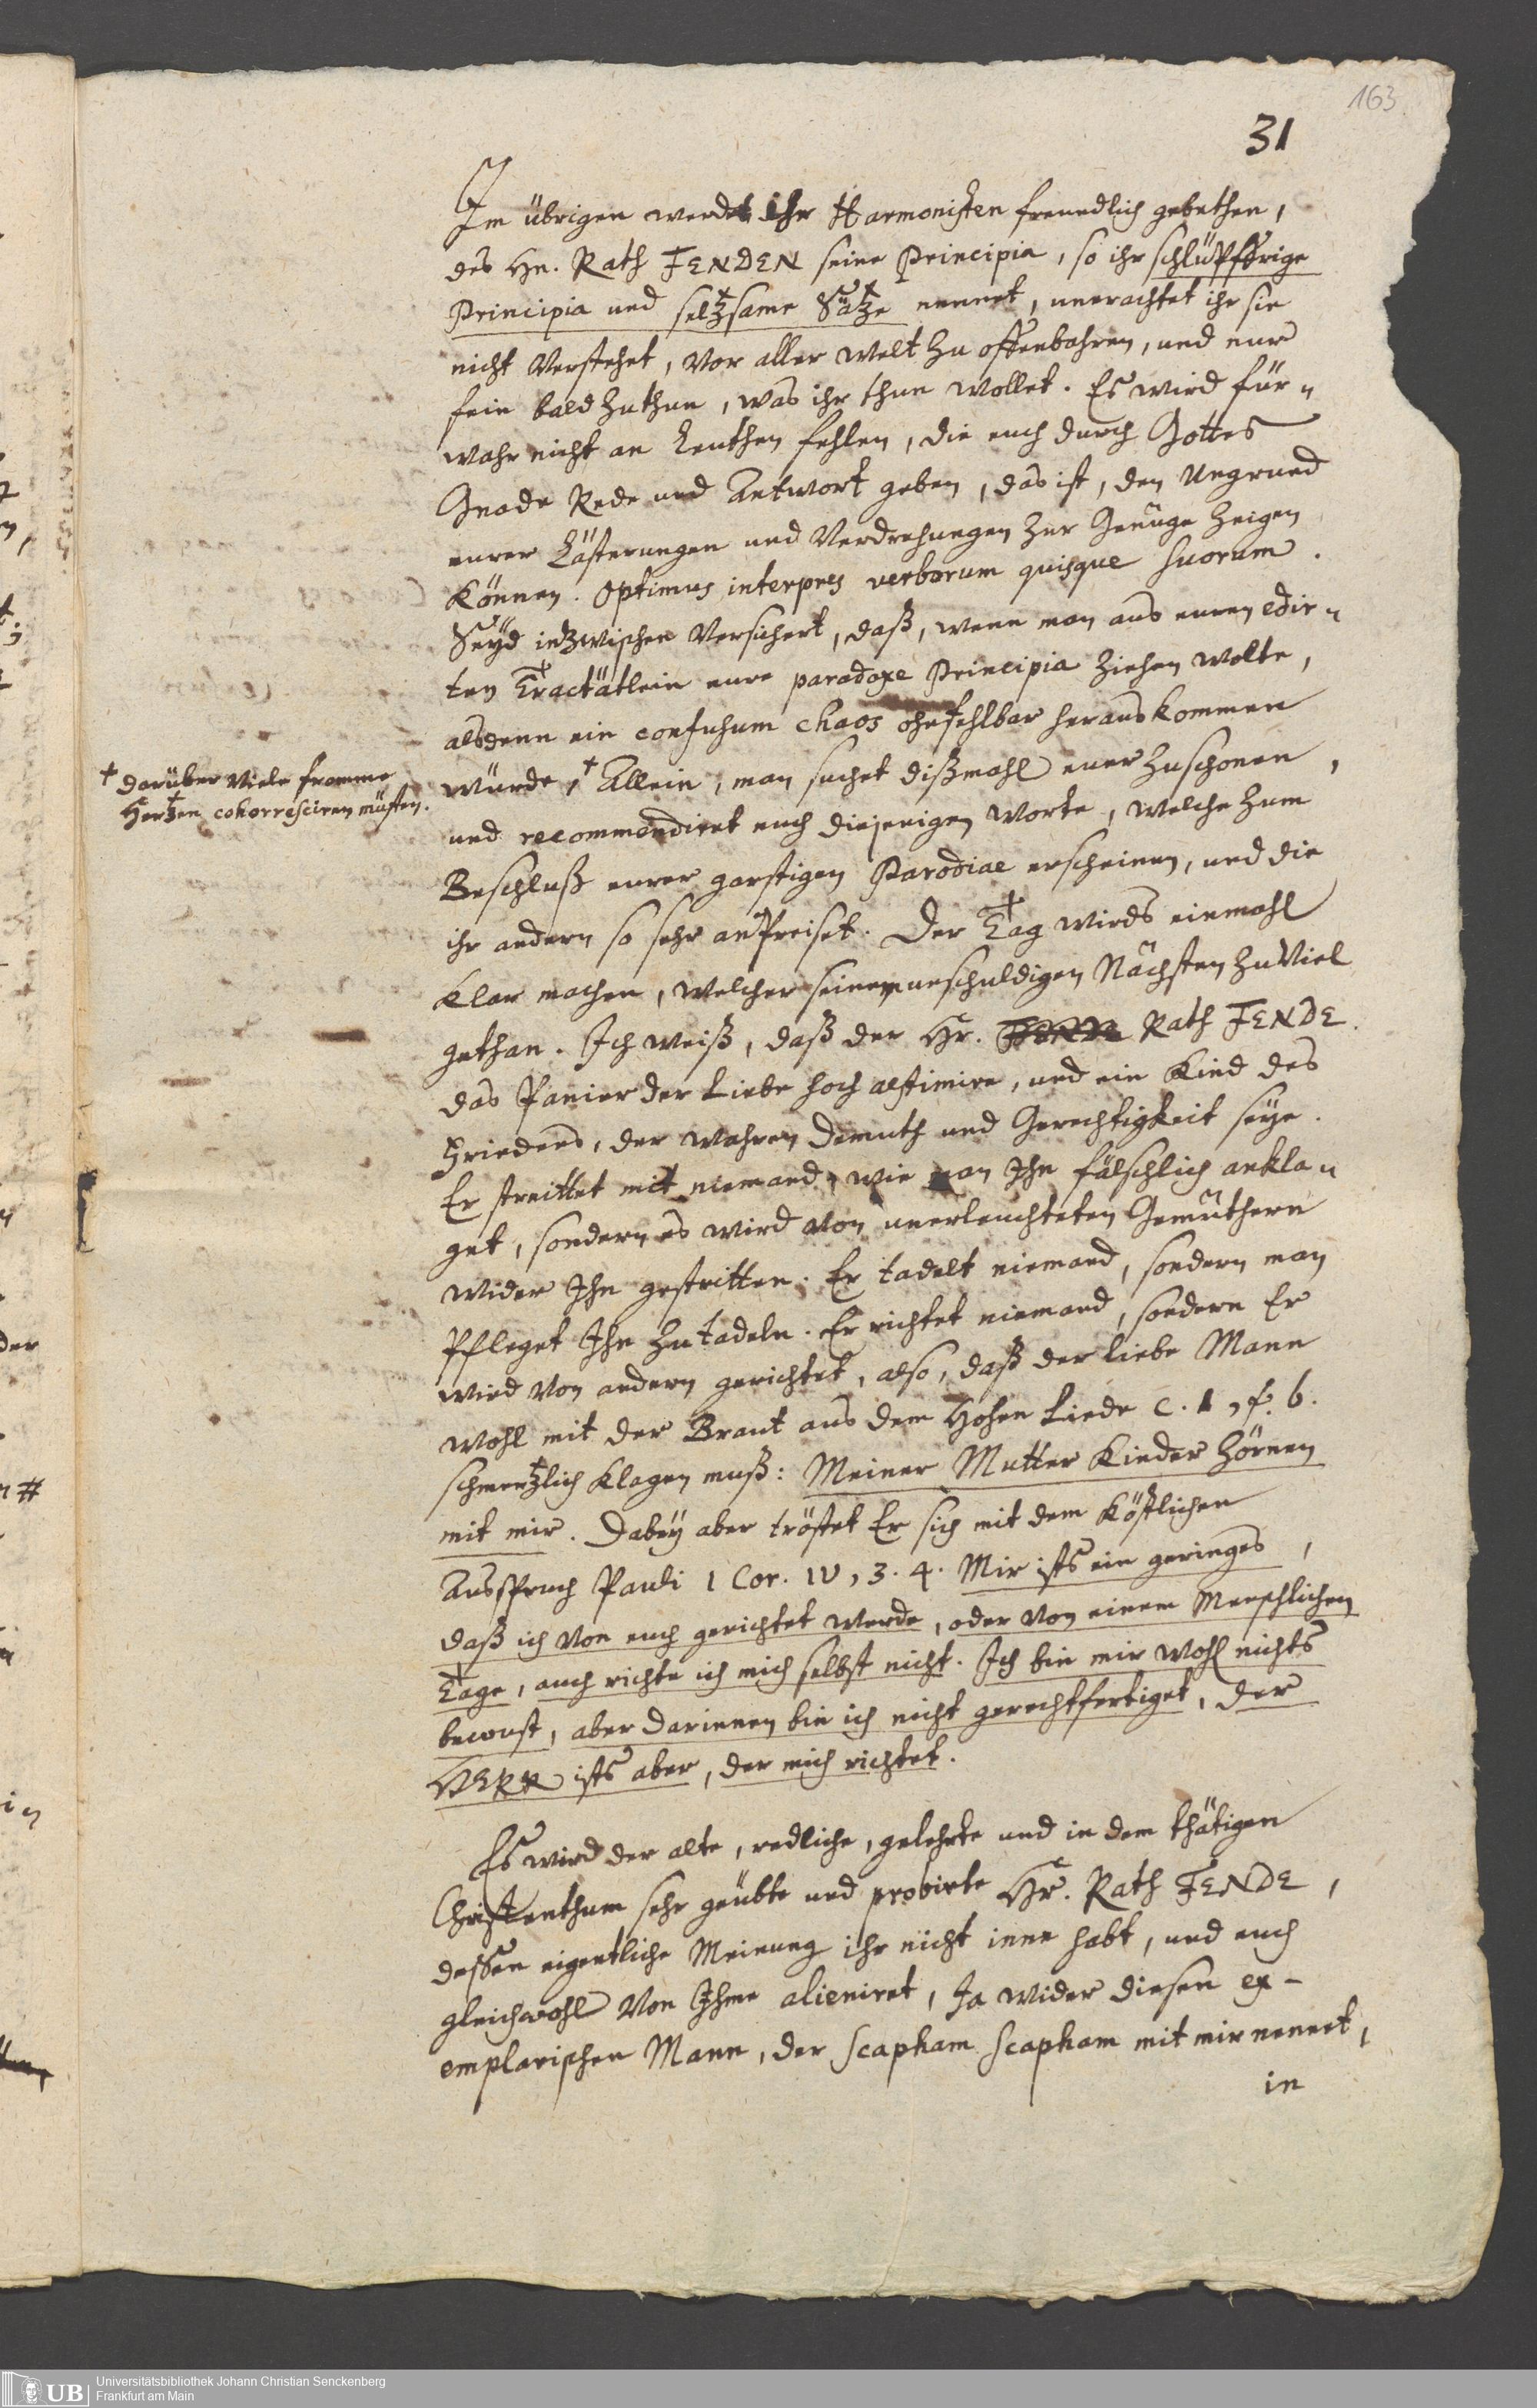 163
31
Im übrigen werdet ihr Harmonisten freundlich gebethen,
des Hn. Rath FENDEN seine Principia, so ihr schlüpffrige
Principia und seltzsame Sätze nennet, unerachtet ihr sie
nicht verstehet, vor aller Welt zu offenbahren, und nur
fein bald zuthun, was ihr thun wollet. Es wird für=
wahr nicht an Leuthen fehlen, die euch durch Gottes
Gnade Rede und Antwort geben, das ist, den Ungrund
eurer Lästerungen und Verdrehungen zur Genüge zeigen
können. Optimus interpres verborum quisque suorum.
Seyd inzwischen versichert, daß, wenn man aus euren edir=
ten Tractätlein eure paradoxe Principia ziehen wolte,
alsdenn ein confusum chaos ohnfehlbar heraus kommen
würde,† Allein, man suchet dißmahl euer zuschonen,
† darüber viele fromme
Hertzen cohorresciren müsten.
und recommendiret euch diejenigen Worte, welche zum
Beschluß eurer garstigen Parodiae erscheinen, und die
ihr andern so sehr anpreiset. Der Tag wirds einmahl
klar machen, welcher seinem unschuldigen Nächsten zuviel
gethan. Ich weiß, daß der Hr. Rath FENDE
das Panier der Liebe hoch æstimire, und ein Kind des
Friedens, der wahren Demuth und Gerechtigkeit seye.
Er streittet mit niemand, wie man Ihn fälschlich ankla=
get, sondern es wird von unerleuchteten Gemüthern
wider Ihn gestritten. Er tadelt niemand, sondern man
pfleget Ihn zu tadeln. Er richtet niemand, sondern Er
wird von andern gerichtet, also, daß der liebe Mann
wohl mit der Braut aus dem Hohen Liede c. 1, f. 6.
schmertzlich klagen muß: Meiner Mutter Kinder zörnen
mit mir. Dabey aber tröstet Er sich mit dem köstlichen
Ausspruch Pauli 1 Cor. IV, 3. 4. Mir ists ein geringes,
daß ich von euch gerichtet werde, oder von einem Menschlichen
Tage, auch richte ich mich selbst nicht. Ich bin mir wohl nichts
bewust, aber darinnen bin ich nicht gerechtfertiget, der
HERR ists aber, der mich richtet.
Es wird der alte, redliche, gelehrte und in dem thätigen
Christenthum sehr geübte und probirte Hr. Rath FENDE,
dessen eigentliche Meinung ihr nicht inne habt, und euch
gleichwohl von Ihme alieniret, Ja wider diesen ex-
emplarischen Mann, der scapham scapham mit mir nennet,
in
UB
Universitätsbibliothek Johann Christian Senckenberg
Frankfurt am Main